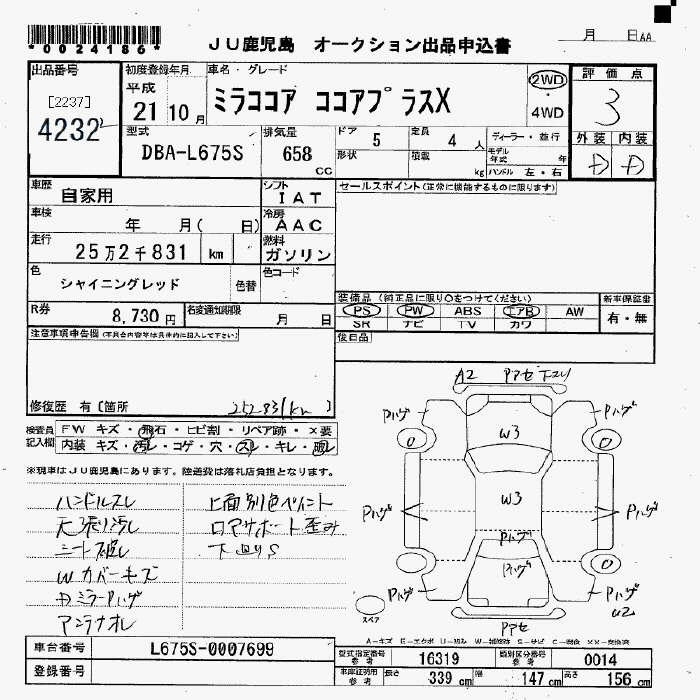 *0024186*
JU鹿児島 オークション出品申込書
月 日AA
出品番号 初度登録年月 車名・グレード 評価点
[2237]
4232
平成 21 10 月
ミラココア ココアプラスX
2WD
・
4WD
3
外装 内装
D D
型式 排気量 ドア 5 定員 4 人 ディーラー・並行
DBA-L675S 658 cc
形状 積載 kg モデル年式 年
ハンドル 左・右
車歴 自家用 シフト IAT セールスポイント(正常に機能するものに限ります)
車検 年 月( 日) 冷房 AAC
走行 25万2千831 km 燃料 ガソリン
色 シャイニングレッド 色替 色コード
装備品(純正品に限り○をつけてください) 新車保証書
R券 8,730円 名変通知期限 月 日
PS PW ABS エアB AW 有・無
SR ナビ TV カワ
注意事項申告欄(不具合内容等は具体的に記入して下さい)
後日品
修復歴 有〔箇所 252831km 〕
検査員記入欄
FW キズ・飛石・ヒビ割・リペア跡・×要
内装 キズ・汚レ・コゲ・穴・スレ・キレ・廻レ
※現車はJU鹿児島にあります。陸送費は落札店負担となります。
ハンドルスレ 上面別色ペイント
天張り汚レ ロアサポート歪み
シート破レ 下廻りS
Wカバーキズ
DミラーPハゲ
アンテナオレ
A2 Pアセ 下スリ
Pハゲ Pハゲ
W3
Pハゲ W3 Pハゲ
Pハゲ
Pハゲ
Pハゲ Pハゲ
U2
スペア
Pアセ
車台番号 L675S-0007699
登録番号
型式指定番号 参考 16319 類別区分番号 参考 0014
車庫証明用 参考 長さ 339 cm 幅 147 cm 高さ 156 cm